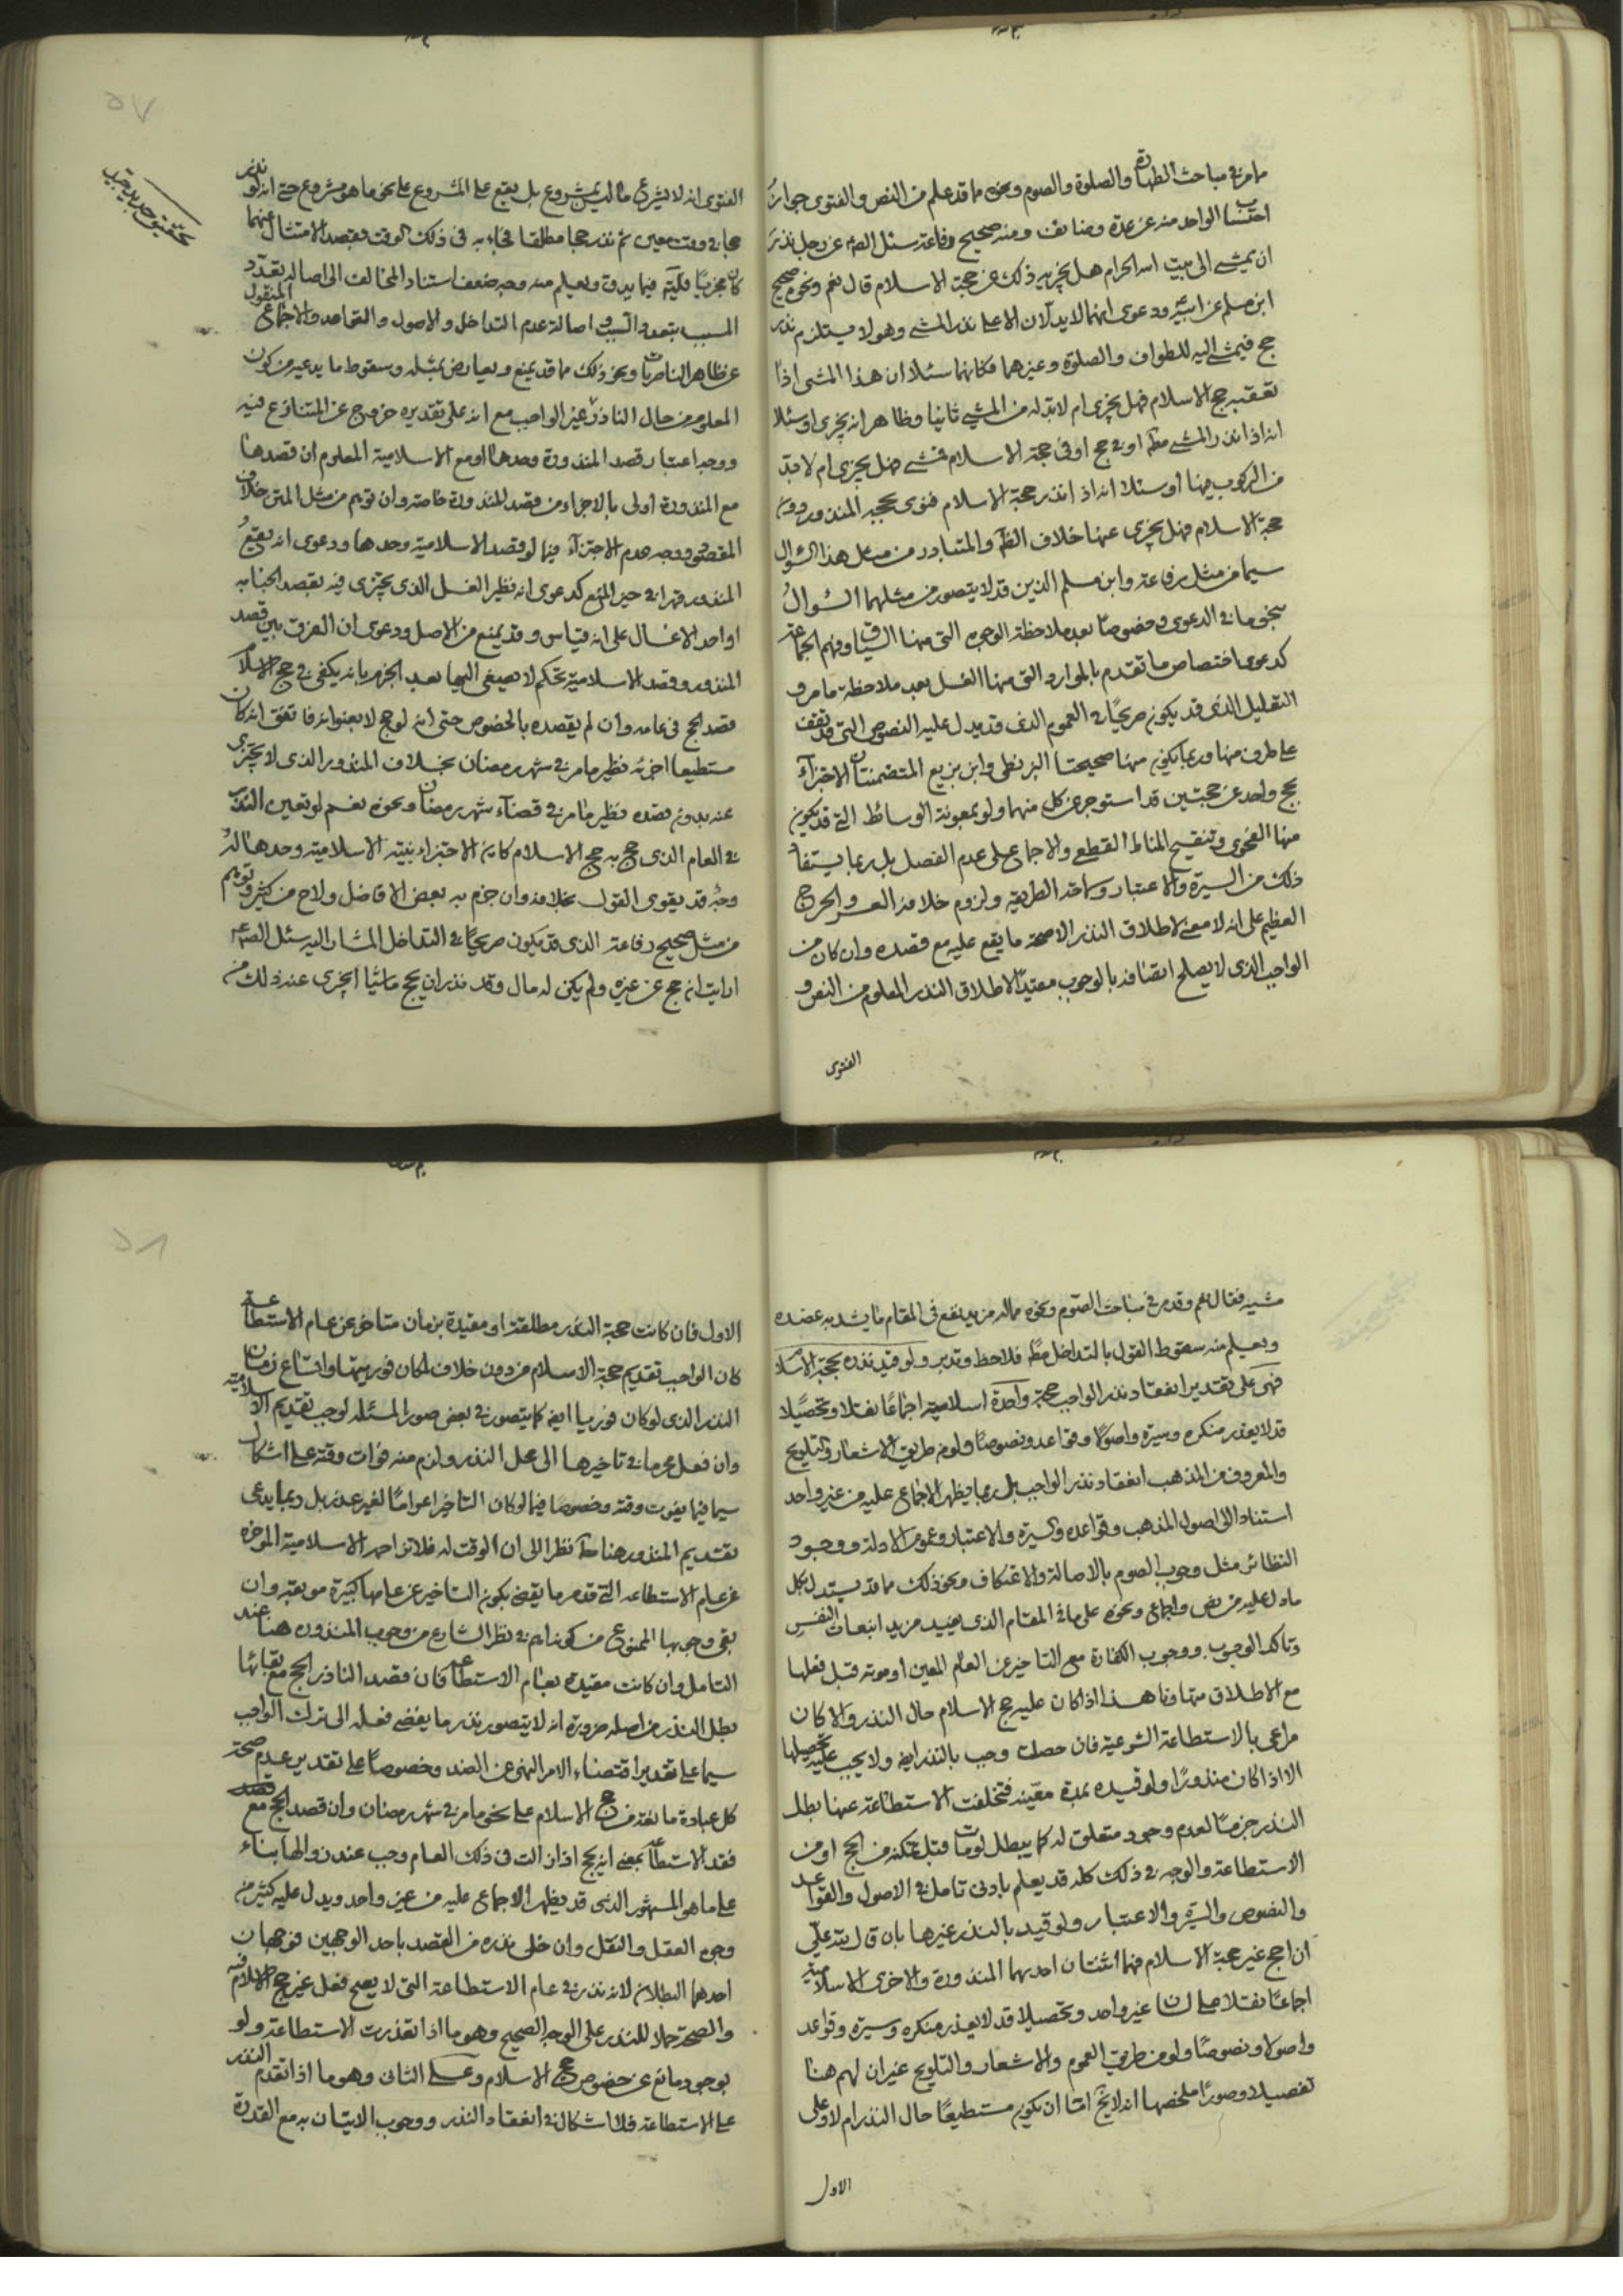 مامر في مباحث الطهارة والصلوة والصوم ونحوه ما قد علم من النص والفتوى جواز
احتساب الواحد منه عن عدة وضائف ومنه صحيح رفاعة سئل الصم عن رجل نذر
ان يمشى الى بيت الله الحرام هل يجزيه ذلك عن حجة الاسلام قال نعم ونحوه صحيح
ابن مسلم عن ابيه ودعوى انهما لا يدلان الا على نذر المشى وهو لا يستلزم نذر
حج فيمشى اليه للطواف والصلوة وغيرهما فكانهما سئلا ان هذا المشى اذا
تعقبه حج الاسلام فهل يجزى ام لا بد له من المشى ثانيا وظاهر انه يجزى او سئلا
انه اذا نذر المشى مط او في حج او في حجة الاسلام فمشى فهل يجزى ام لا بد
من الركوب فيها او سئلا انه اذا نذر حجة الاسلام فنوى بحجه المنذور دون
حجة الاسلام فهل يجزى عنها خلاف الظ والمتبادر من مثل هذا السؤال
سيما من مثل رفاعة وابن مسلم الذين قد لا يتصور من مثلهما السؤال
بنحو ما في الدعوى وخصوصا بعد ملاحظة الوجوه التى منها السياق وفهم الجماعة
كدعوى اختصاص ما تقدم بالموارد التى منها الغسل بعد ملاحظة ما مر و
التعليل الذى قد يكون صريحا في العموم الذى قد يدل عليه النصوص التى قد تقف
على طرف منها وربما يكفى منها صحيحتا البزنطى وابن بزيع المتضمنتان الاجتزاء
بحج واحد عن حجتين قد استوجر عن كل منهما ولو بمعونة الوسائط التى قد تكون
منها الفحوى وتنقيح المناط القطعى والاجماع على عدم الفصل بل ربما يستفاد
ذلك من السيرة والاعتبار وسماحة الطريقة ولزوم خلافه العسر والحرج
العظيم على انه لا معنى لاطلاق النذر الا صحة ما يقع عليه مع قصده وان كان من
الواجب الذى لا يصلح اتصافه بالوجوب مقيدا لاطلاق النذر المعلوم من النص و
الفتوى
تحقيق جديد جيد
الفتوى انه لا يشرع ما ليس بمشروع بل يقع على المشروع على نحو ما هو مشروع حتى انه لو نذر
حجا في وقت معين ثم نذر حجا مطلقا فجاء به فى ذلك الوقت بقصد الامتثال عنهما
كان مجزيا فليتم فيما يدق ويعلم منه وجه ضعف استناد المخالف الى اصالة تعدد
المسبب بتعدد السبب واصالة عدم التداخل والاصول والقواعد والاجماع المنقول
عن ظاهر الناصريات ونحو ذلك مما قد يمنع ويعارض بمثله وسقوط ما يدعيه من كون
المعلوم من حال الناذر غير الواجب مع انه على تقديره خروج عن المتنازع فيه
ووجه اعتبار قصد المنذورة وحدها او مع الاسلامية المعلوم ان قصدها
مع المنذورة اولى بالاجزاء من قصد المنذورة خاصة وان توهم من مثل المتن خلاف
المقصود ووجه عدم الاجتزاء فيما لو قصد الاسلامية وحدها ودعوى انه يقع
المنذور قهرا في حيز المنع كدعوى انه نظير الغسل الذى يجتزى فيه بقصد الجنابة
او احد الاغسال على انه قياس وقد يمنع من الاصل ودعوى ان الفرق بين قصد
المنذور وقصد الاسلامية تحكم لا يصغى اليها بعد الجزم بانه يكفى في حج الاسلام
قصد الحج فى عامه وان لم يقصده بالخصوص حتى انه لو حج لا بعنوانه فاتفق انه كان
مستطيعا اجزئه نظير ما مر في شهر رمضان بخلاف المنذور الذى لا يجتزى
عنه بدون قصده نظير ما مر في قضاء شهر رمضان ونحوه نعم لو تعين النذر
في العام الذى حج به حج الاسلام كان الاجتزاء بنية الاسلامية وحدها له
وجه قد يقوى القول بخلافه وان جزم به بعض الافاضل ولاح من كثير وتوهم
من مثل صحيح رفاعة الذى قد يكون صريحا في التداخل المشار اليه سئل الصم
ارايت ان حج عن غيره ولم يكن له مال وقد نذر ان يحج ماشيا ايجزى عنه ذلك من
مشيه فقال نعم وقد مر في مباحث الصوم ونحوه ما له مزيد نفع فى المقام ما يشد به عضده
ويعلم منه سقوط القول بالتداخل مط فلاحظ وتدبر ولو قيد نذره بحجة الاسلام
فهى على تقدير انعقاد نذر الواجب حجة واحدة اسلامية اجماعا نقلا وتحصيلا
قد لا يعذر منكره وسيرة واصولا وقواعد ونصوصا ولو من طريق الاشعار والتلويح
والمعروف من المذهب انعقاد نذر الواجب بل ربما يظهر الاجماع عليه من غير واحد
استنادا الى اصول المذهب وقواعده والسيرة والاعتبار وعموم الادلة ووجود
النظائر مثل وجوب الصوم بالاصالة والاعتكاف ونحو ذلك مما قد يستدل بكل
ما دل عليه من نص واجماع ونحوه على ما فى المقام الذى يفيد مزيد انبعاث النفس
وتاكد الوجوب ووجوب الكفارة مع التاخير عن العام المعين او موته قبل فعلها
مع الاطلاق متهاونا هذا اذا كان عليه حج الاسلام حال النذر والا كان
مراعى بالاستطاعة الشرعية فان حصلت وجب بالنذر ايضا ولا يجب عليه تحصيلها
الا اذا كان منذورا ولو قيده بمدة معينة فتخلفت الاستطاعة عنها بطل
النذر جزما لعدم وجود متعلق له كما يبطل لو مات قبل تمكنه من الحج او من
الاستطاعة والوجه في ذلك كله قد يعلم بادنى تامل في الاصول والقواعد
والنصوص والسيرة والاعتبار ولو قيد بالنذر غيرها بان قال لله على
ان احج غير حجة الاسلام فهما اثنتان احديهما المنذورة والاخرى الاسلامية
اجماعا نقلا على لسان غير واحد وتحصيلا قد لا يعذر منكره وسيرة وقواعد
واصولا ونصوصا ولو من طريق العموم والاشعار والتلويح غير ان لهم هنا
تفصيلا وصورا ملخصها انه لا يخ اما ان يكون مستطيعا حال النذر ام لا وعلى
الاول
الاول فان كانت حجة النذر مطلقة او مقيدة بزمان متاخر عن عام الاستطاعة
كان الواجب تقديم حجة الاسلام من دون خلاف لمكان فوريتها واتساع زمان
النذر الذى لو كان فوريا ايضا كما يتصور في بعض صور المسئلة لوجب تقديم الاسلامية
وان فعل محرما في تاخيرها الى محل النذر ولزم منه فوات وقته على اشكال
سيما فيما يفوت وقته وخصوصا فيما لو كان التاخير اعواما لغير عذر بل ربما يدعى
تقديم المنذور هنا مط نظرا الى ان الوقت له فلا تزاحمه الاسلامية المؤخرة
عن عام الاستطاعة التى قد مر ما يقضى بكون التاخير عن عامها كبيرة موبقة وان
بقى وجوبها الممنوع من كونه اهم في نظر الشارع من وجوب المنذورة هنا عند
التامل وان كانت مقيدة بعام الاستطاعة فان قصد الناذر الحج مع بقائها
بطل النذر من اصله ضرورة انه لا يتصور نذر ما يفضى فعله الى ترك الواجب
سيما على تقدير اقتضاء الامر النهى عن الضد وخصوصا على تقدير عدم صحة
كل عبادة ما تعذر من حج الاسلام على نحو ما مر في شهر رمضان وان قصد الحج مع
فقد الاستطاعة بمعنى انه يحج اذا زالت فى ذلك العام وجب عند زوالها بناء
على ما هو المشهور الذى قد يظهر الاجماع عليه من غير واحد ويدل عليه كثير من
وجوه العقل والنقل وان خلى نذره من القصد باحد الوجهين فوجهان
احدهما البطلان لانه نذر في عام الاستطاعة التى لا يصح فعل غير حج الاسلام فيه
والصحة حملا للنذر على الوجه الصحيح وهو ما اذا تعذرت الاستطاعة ولو
بوجود مانع عن خصوص حج الاسلام وعلى الثانى وهو ما اذا تقدم النذر
على الاستطاعة فلا اشكال في انعقاد النذر ووجوب الاتيان به مع القدرة